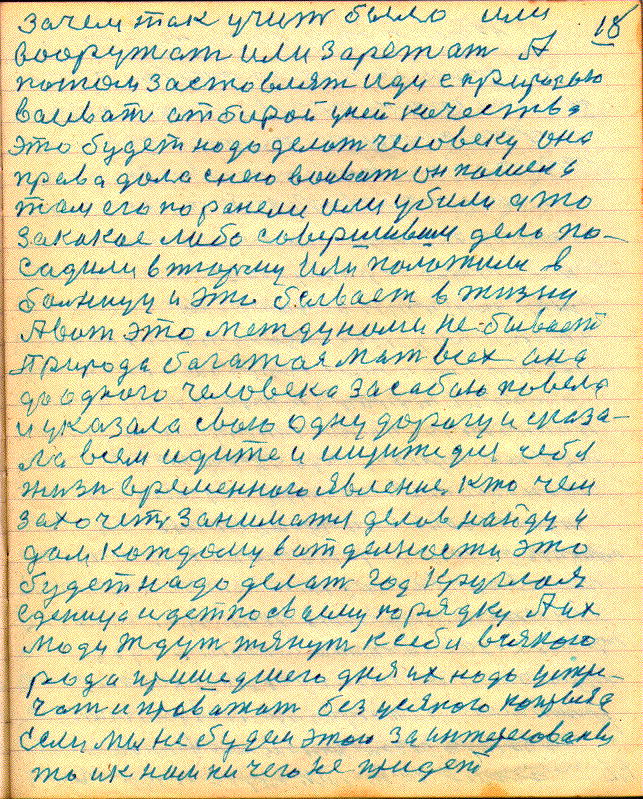 18
зачем так учит было или
вооружат или зарежат А
потом заставлят иди с природою
воеват отбирой уней качества
это будет надо делат человеку она
права дала снею воеват он пошел а
там его поранели или убили а то
закакое либо совершивши дело по-
садили втюрму или положили в
болницу и это бывает в жизни
Авот это междунами не бывает
природа багатая мат всех она
доодного человека засабою повела
и указала свою одну дорогу и сказа-
ла всем идите и ищите для себя
жизн временного явление. Кто чем
захочет заниматся делов найду и
дам каждому вотделности это
будет надо делат год круглая
еденица идет посвоему порядку А их
люди ждут тянут к себи всякого
рода пришедшего дня их надо устре-
чат и проважат без усякого
если мы не будем этого заинтересованы
то ик нам ни чего не придет